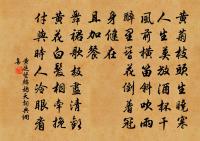 黃菊枝頭生曉寒
人生莫放酒杯干
風前橫笛斜吹雨
醉裡簪花倒着冠
身健在
且加餐
舞裙歌板盡清歡
黃花白髮相牽挽
付與時人冷眼看